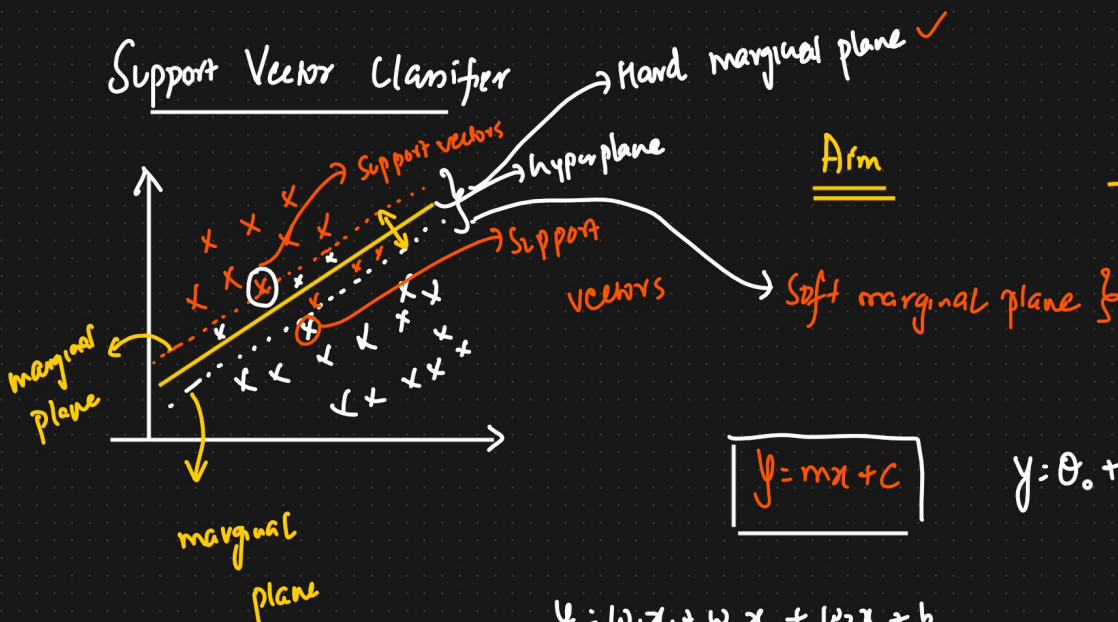 Support Vector Classifier
Hard marginal plane ✓
Support vectors
hyperplane
Aim
Support
vectors
Soft marginal plane }
marginal
plane
y = mx + c
y = θ₀ +
marginal
plane